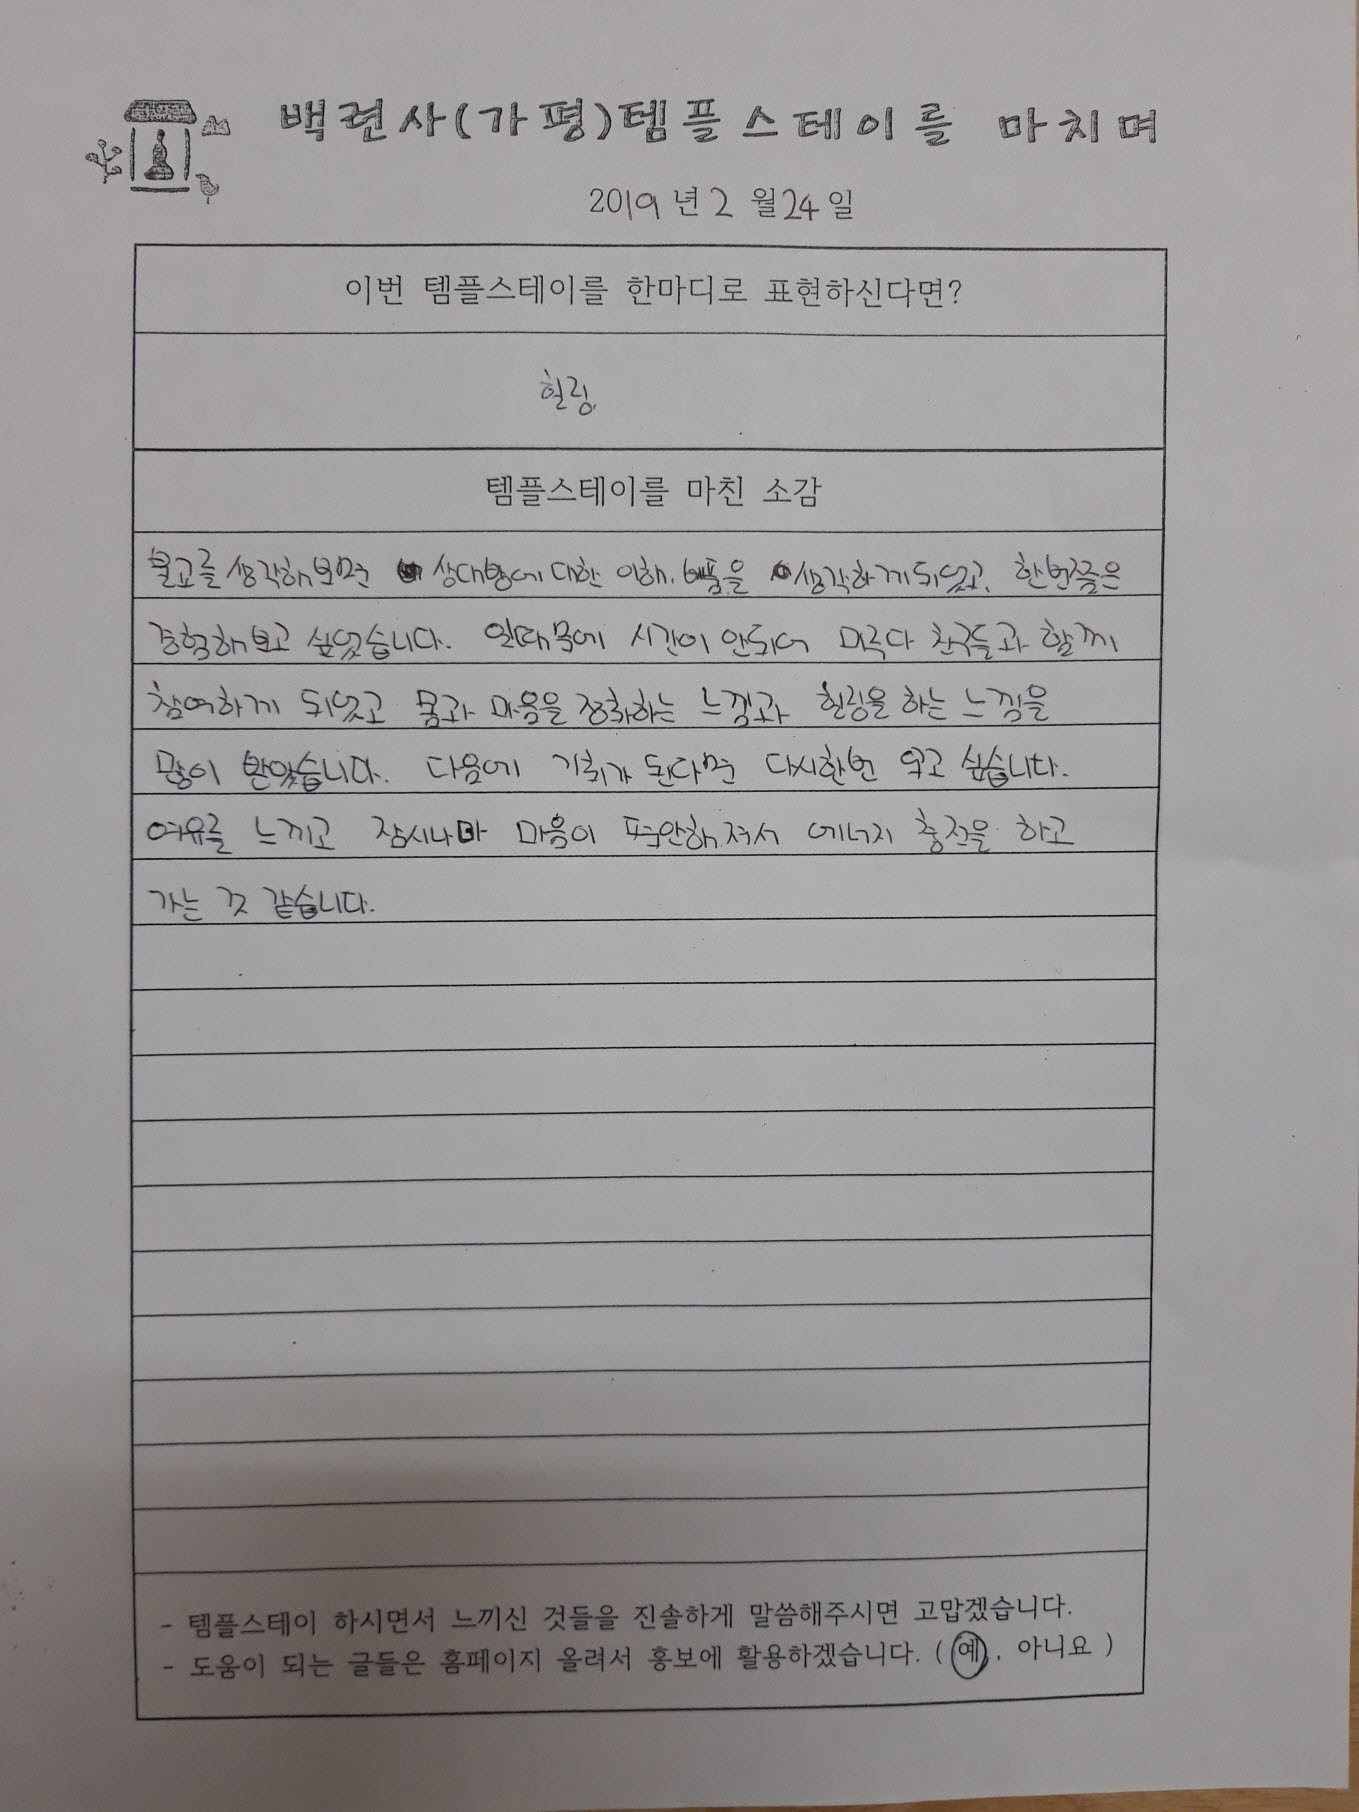 백련사(가평)템플스테이를 마치며
2019년 2월 24일
이번 템플스테이를 한마디로 표현하신다면?
힐링
템플스테이를 마친 소감
불교를 생각해보면 상대방에 대한 이해, 베풂을 생각하게되었고, 한번쯤은
경험해보고 싶었습니다. 일때문에 시간이 안되어 미루다 친구들과 함께
참여하게 되었고 몸과 마음을 정화하는 느낌과 힐링을 하는 느낌을
많이 받았습니다. 다음에 기회가 된다면 다시한번 오고 싶습니다.
여유를 느끼고 잠시나마 마음이 편안해져서 에너지 충전을 하고
가는 것 같습니다.
- 템플스테이 하시면서 느끼신 것들을 진솔하게 말씀해주시면 고맙겠습니다.
- 도움이 되는 글들은 홈페이지 올려서 홍보에 활용하겠습니다. ( 예 , 아니요 )